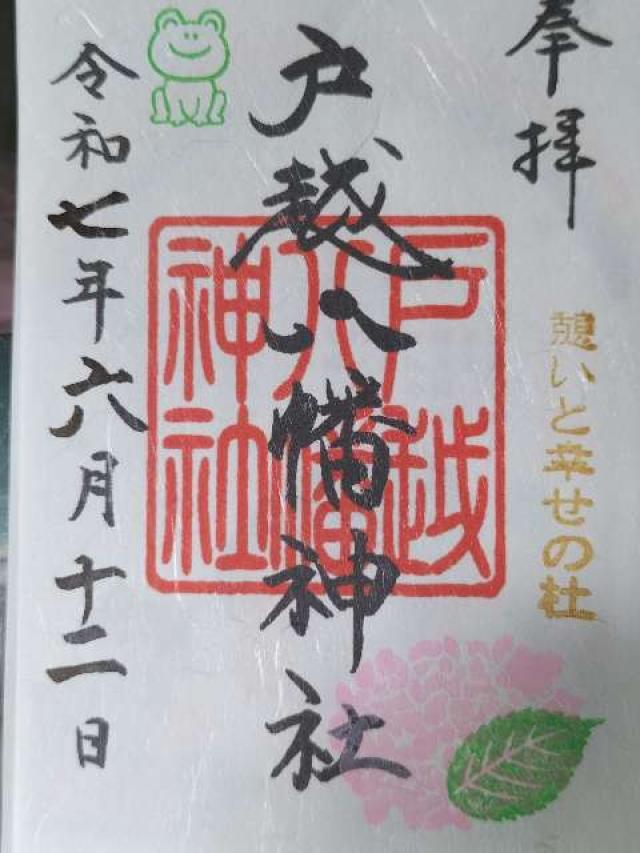 奉拝
憩いと幸せの杜
戸越八幡神社
戸越
八幡
神社
令和七年六月十二日